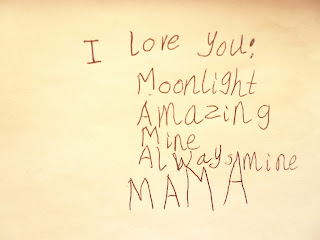 I love you:
Moonlight
Amazing
Mine
Always mine
MAMA